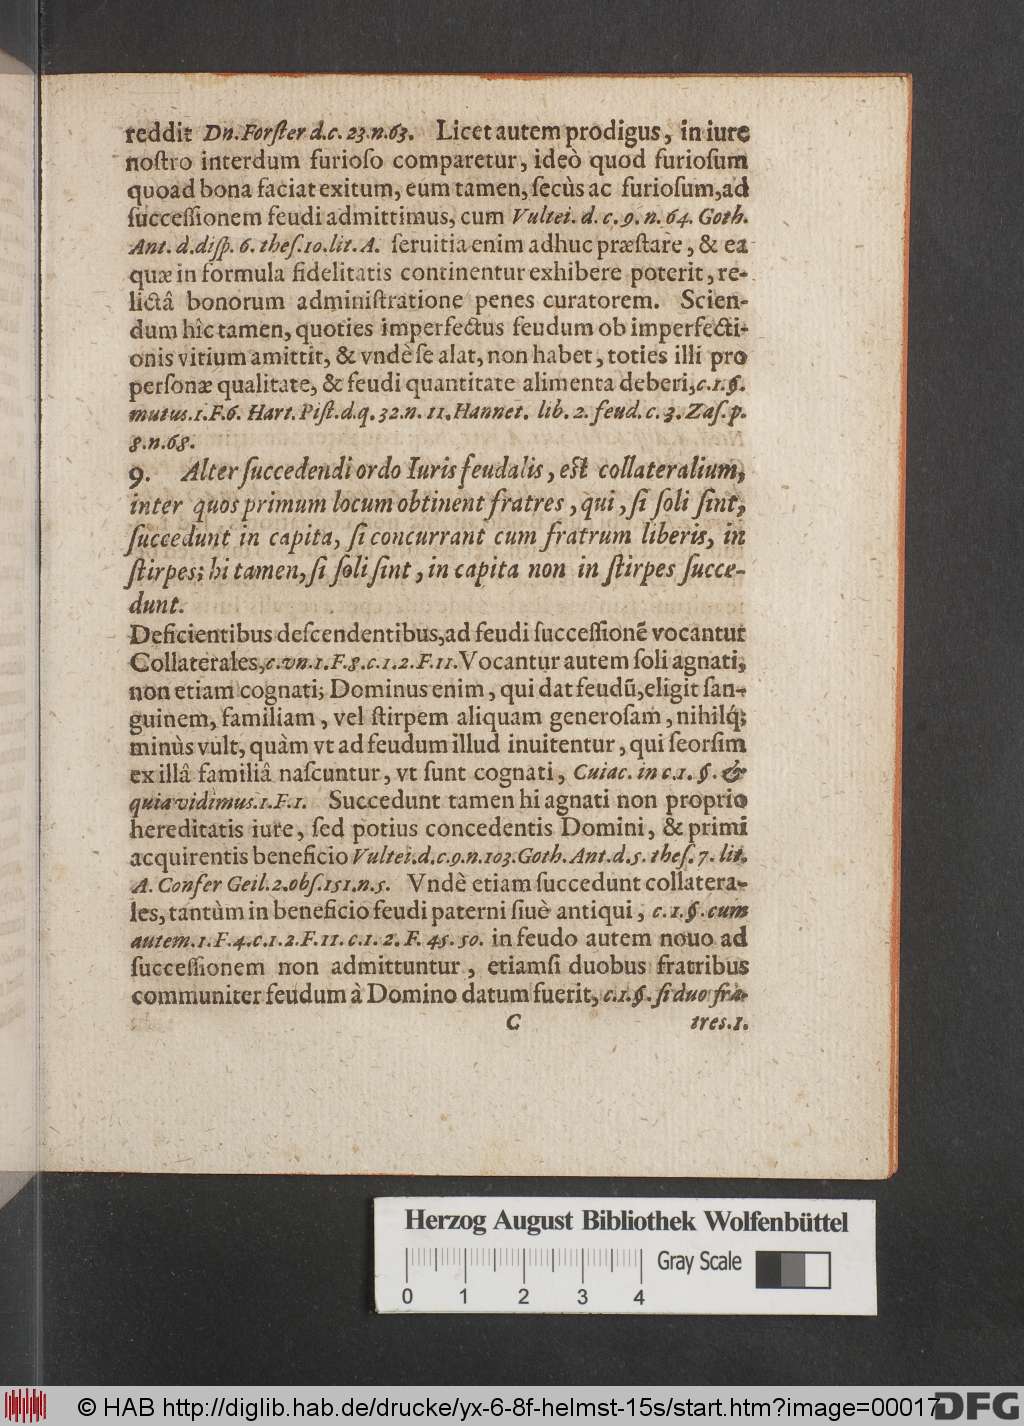 reddit Dn. Forſter d.c. 23.n.63. Licet autem prodigus, in iure
noſtro interdum furioſo comparetur, ideò quod furioſum
quoad bona faciat exitum, eum tamen, ſecùs ac furioſum, ad
ſucceſſionem feudi admittimus, cum Vultei. d. c. 9. n. 64. Goth.
Ant. d. diſp. 6. theſ. 10. lit. A. ſeruitia enim adhuc præſtare, & ea
quæ in formula fidelitatis continentur exhibere poterit, re-
lictâ bonorum adminiſtratione penes curatorem. Scien-
dum hîc tamen, quoties imperfectus feudum ob imperfecti-
onis vitium amittit, & vndè ſe alat, non habet, toties illi pro
perſonæ qualitate, & feudi quantitate alimenta deberi, c. 1. §.
mutus. 1. F. 6. Hart. Piſt. d. q. 32. n. 11. Hannet. lib. 2. feud. c. 3. Zaſ. p.
8. n. 68.
9. Alter ſuccedendi ordo Iuris feudalis, eſt collateralium,
inter quos primum locum obtinent fratres, qui, ſi ſoli ſint,
ſuccedunt in capita, ſi concurrant cum fratrum liberis, in
ſtirpes; hi tamen, ſi ſoli ſint, in capita non in ſtirpes ſucce-
dunt.
Deficientibus deſcendentibus, ad feudi ſucceſſionẽ vocantur
Collaterales, c. vn. 1. F. 8. c. 1. 2. F. 11. Vocantur autem ſoli agnati,
non etiam cognati; Dominus enim, qui dat feudũ, eligit ſan-
guinem, familiam, vel ſtirpem aliquam generoſam, nihilq́;
minùs vult, quàm vt ad feudum illud inuitentur, qui ſeorſim
ex illâ familiâ naſcuntur, vt ſunt cognati, Cuiac. in c. 1. §. &
quia vidimus. 1. F. 1. Succedunt tamen hi agnati non proprio
hereditatis iure, ſed potius concedentis Domini, & primi
acquirentis beneficio Vultei. d. c. 9. n. 103. Goth. Ant. d. 5. theſ. 7. lit.
A. Confer Geil. 2. obſ. 151. n. 5. Vndè etiam ſuccedunt collatera-
les, tantùm in beneficio feudi paterni ſiuè antiqui, c. 1. §. cum
autem. 1. F. 4. c. 1. 2. F. 11. c. 1. 2. F. 45. 50. in feudo autem nouo ad
ſucceſſionem non admittuntur, etiamſi duobus fratribus
communiter feudum à Domino datum fuerit, c. 1. §. ſi duo fra-
C tres. 1.
Herzog August Bibliothek Wolfenbüttel
Gray Scale
0 1 2 3 4
© HAB http://diglib.hab.de/drucke/yx-6-8f-helmst-15s/start.htm?image=00017
DFG